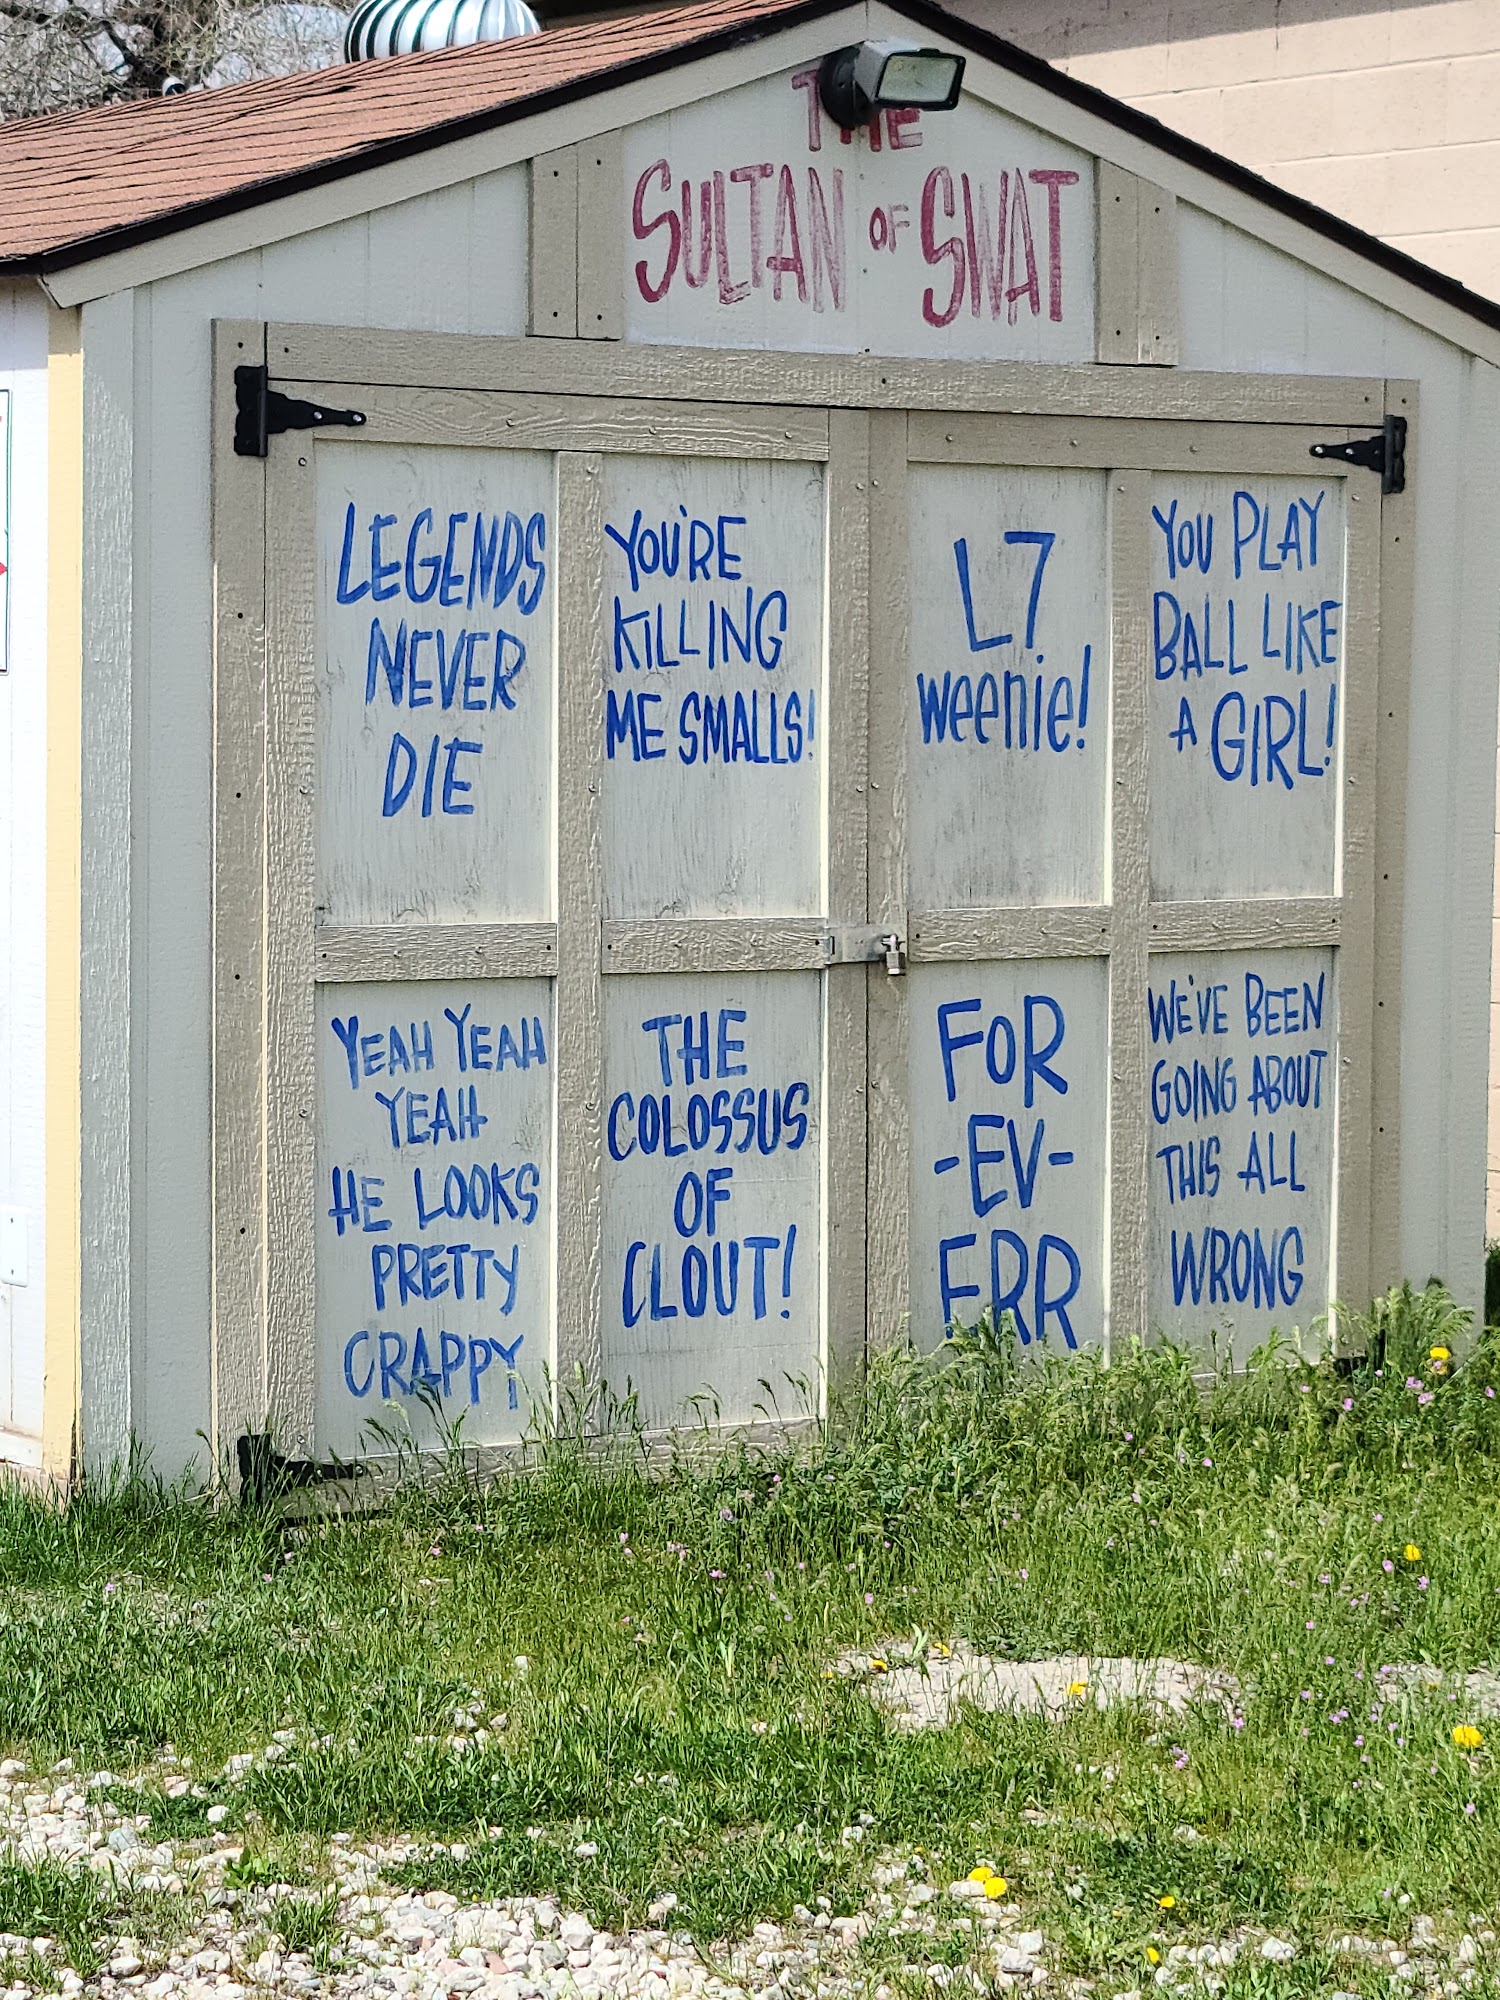 THE
SULTAN OF SWAT
LEGENDS
NEVER
DIE
YOU'RE
KILLING
ME SMALLS!
L7
weenie!
YOU PLAY
BALL LIKE
A GIRL!
YEAH YEAH
YEAH
HE LOOKS
PRETTY
CRAPPY
THE
COLOSSUS
OF
CLOUT!
FOR
-EV-
ERR
WE'VE BEEN
GOING ABOUT
THIS ALL
WRONG